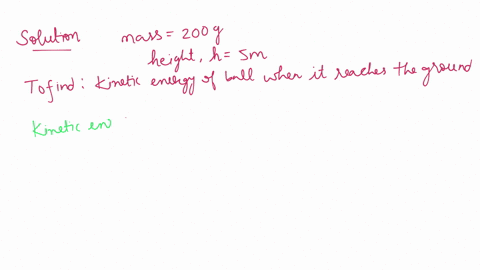 Solution mass = 200 g
height, h = 5m
To find : Kinetic energy of ball when it reaches the ground
Kinetic en